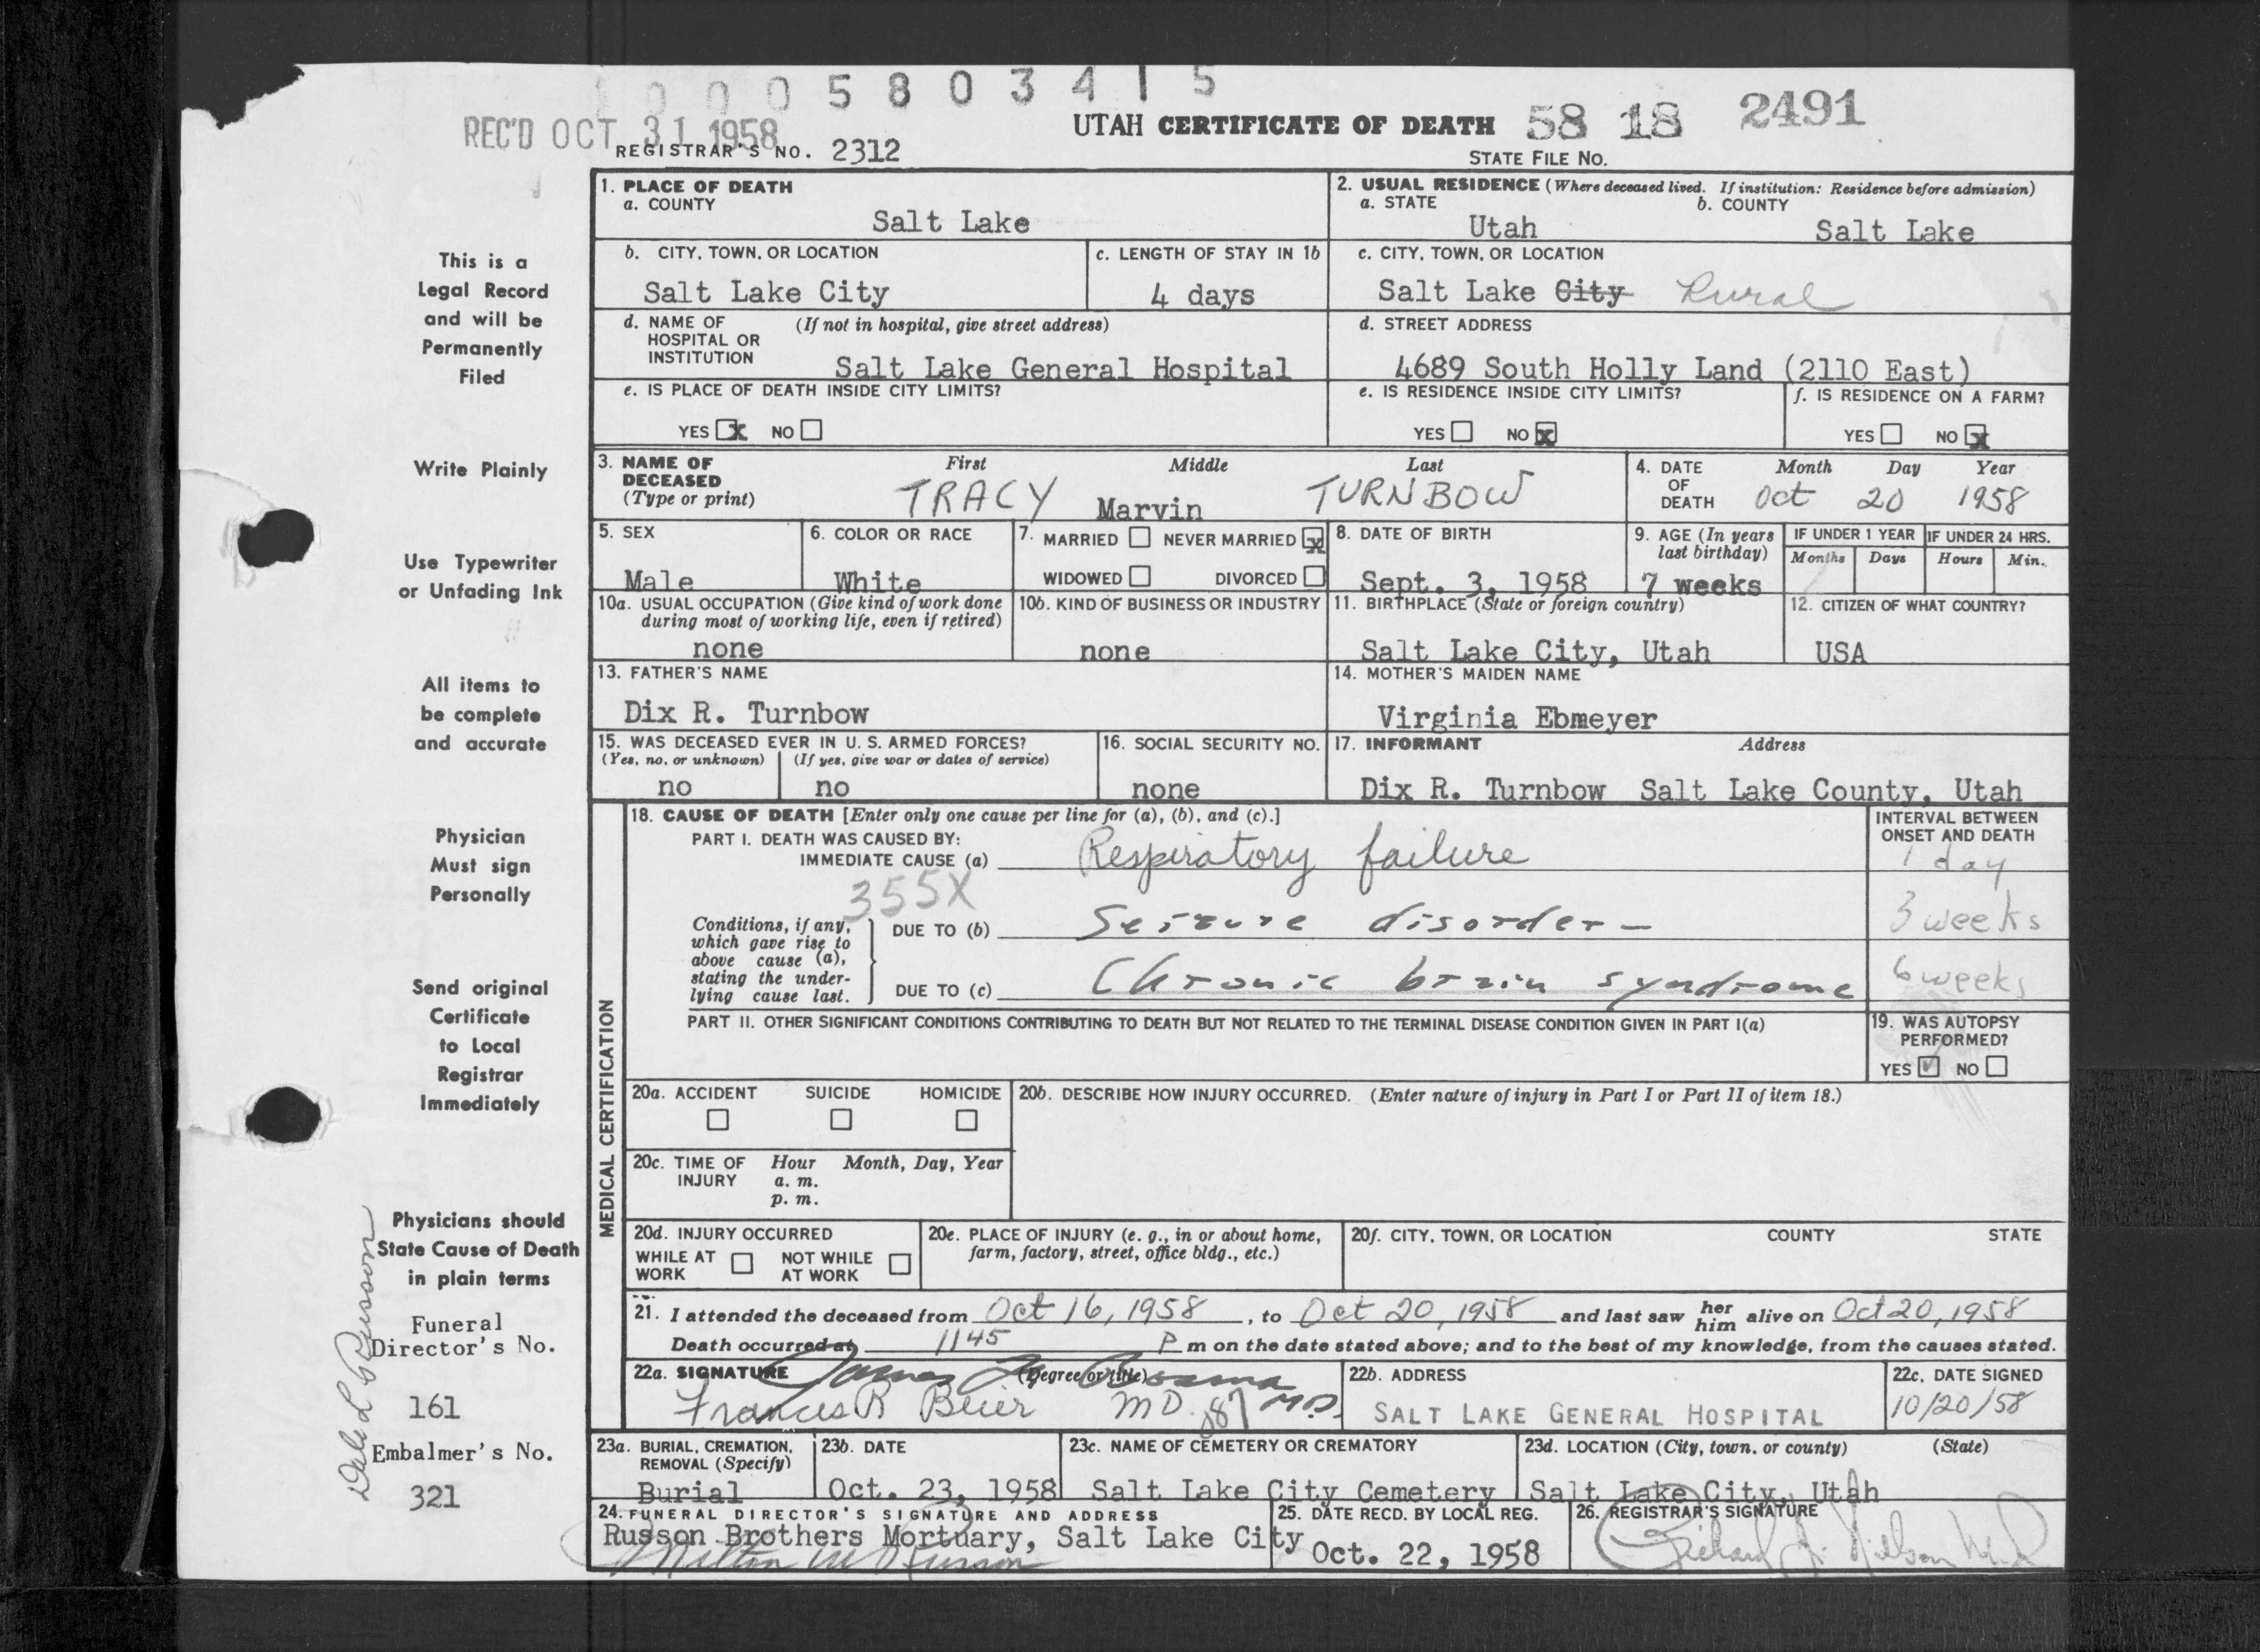 0 0 0 5 8 0 3 4 1 5
REC'D OCT 31 1958
UTAH CERTIFICATE OF DEATH 58 18 2491
REGISTRAR'S NO. 2312
STATE FILE NO.
This is a
Legal Record
and will be
Permanently
Filed
Write Plainly
Use Typewriter
or Unfading Ink
All items to
be complete
and accurate
Physician
Must sign
Personally
Send original
Certificate
to Local
Registrar
Immediately
Physicians should
State Cause of Death
in plain terms
Funeral
Director's No.
161
Embalmer's No.
321
1. PLACE OF DEATH
a. COUNTY
Salt Lake
2. USUAL RESIDENCE (Where deceased lived. If institution: Residence before admission)
a. STATE b. COUNTY
Utah Salt Lake
b. CITY, TOWN, OR LOCATION
Salt Lake City
c. LENGTH OF STAY IN 1b
4 days
c. CITY, TOWN, OR LOCATION
Salt Lake City Rural
d. NAME OF (If not in hospital, give street address)
HOSPITAL OR
INSTITUTION Salt Lake General Hospital
d. STREET ADDRESS
4689 South Holly Land (2110 East)
e. IS PLACE OF DEATH INSIDE CITY LIMITS?
YES x NO
e. IS RESIDENCE INSIDE CITY LIMITS?
YES NO x
f. IS RESIDENCE ON A FARM?
YES NO x
3. NAME OF First Middle Last
DECEASED
(Type or print) TRACY Marvin TURNBOW
4. DATE Month Day Year
OF
DEATH Oct 20 1958
5. SEX
Male
6. COLOR OR RACE
White
7. MARRIED NEVER MARRIED x
WIDOWED DIVORCED
8. DATE OF BIRTH
Sept. 3, 1958
9. AGE (In years
last birthday)
7 weeks
IF UNDER 1 YEAR IF UNDER 24 HRS.
Months Days Hours Min.
10a. USUAL OCCUPATION (Give kind of work done
during most of working life, even if retired)
none
10b. KIND OF BUSINESS OR INDUSTRY
none
11. BIRTHPLACE (State or foreign country)
Salt Lake City, Utah
12. CITIZEN OF WHAT COUNTRY?
USA
13. FATHER'S NAME
Dix R. Turnbow
14. MOTHER'S MAIDEN NAME
Virginia Ebmeyer
15. WAS DECEASED EVER IN U. S. ARMED FORCES?
(Yes, no, or unknown) (If yes, give war or dates of service)
no no
16. SOCIAL SECURITY NO.
none
17. INFORMANT Address
Dix R. Turnbow Salt Lake County, Utah
MEDICAL CERTIFICATION
18. CAUSE OF DEATH [Enter only one cause per line for (a), (b), and (c).]
INTERVAL BETWEEN
ONSET AND DEATH
PART I. DEATH WAS CAUSED BY:
IMMEDIATE CAUSE (a) Respiratory failure 1 day
355X
Conditions, if any,
which gave rise to
above cause (a),
stating the under-
lying cause last.
DUE TO (b) Seizure disorder- 3 weeks
DUE TO (c) Chronic brain syndrome 6 weeks
PART II. OTHER SIGNIFICANT CONDITIONS CONTRIBUTING TO DEATH BUT NOT RELATED TO THE TERMINAL DISEASE CONDITION GIVEN IN PART I(a)
19. WAS AUTOPSY
PERFORMED?
YES ✓ NO
20a. ACCIDENT SUICIDE HOMICIDE
20b. DESCRIBE HOW INJURY OCCURRED. (Enter nature of injury in Part I or Part II of item 18.)
20c. TIME OF Hour Month, Day, Year
INJURY a. m.
p. m.
20d. INJURY OCCURRED
WHILE AT NOT WHILE
WORK AT WORK
20e. PLACE OF INJURY (e. g., in or about home,
farm, factory, street, office bldg., etc.)
20f. CITY, TOWN, OR LOCATION COUNTY STATE
21. I attended the deceased from Oct 16, 1958, to Oct 20, 1958 and last saw her him alive on Oct 20, 1958
Death occurred at 1145 P m on the date stated above; and to the best of my knowledge, from the causes stated.
22a. SIGNATURE (Degree or title)
Francis R Beier MD M.D.
22b. ADDRESS
SALT LAKE GENERAL HOSPITAL
22c. DATE SIGNED
10/20/58
23a. BURIAL, CREMATION,
REMOVAL (Specify)
Burial
23b. DATE
Oct. 23, 1958
23c. NAME OF CEMETERY OR CREMATORY
Salt Lake City Cemetery
23d. LOCATION (City, town, or county) (State)
Salt Lake City, Utah
24. FUNERAL DIRECTOR'S SIGNATURE AND ADDRESS
Russon Brothers Mortuary, Salt Lake City
25. DATE RECD. BY LOCAL REG.
Oct. 22, 1958
26. REGISTRAR'S SIGNATURE